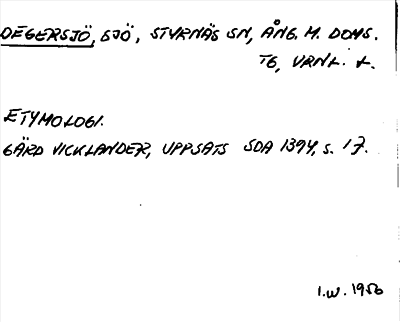 DEGERSJÖ, SJÖ, STYRNÄS SN, ÅNG. M. DOMS.
TG, VRNL. L.
ETYMOLOGI.
GÄRD VICKLANDER, UPPSATS SDA 1394, S. 17.
I.W. 1956